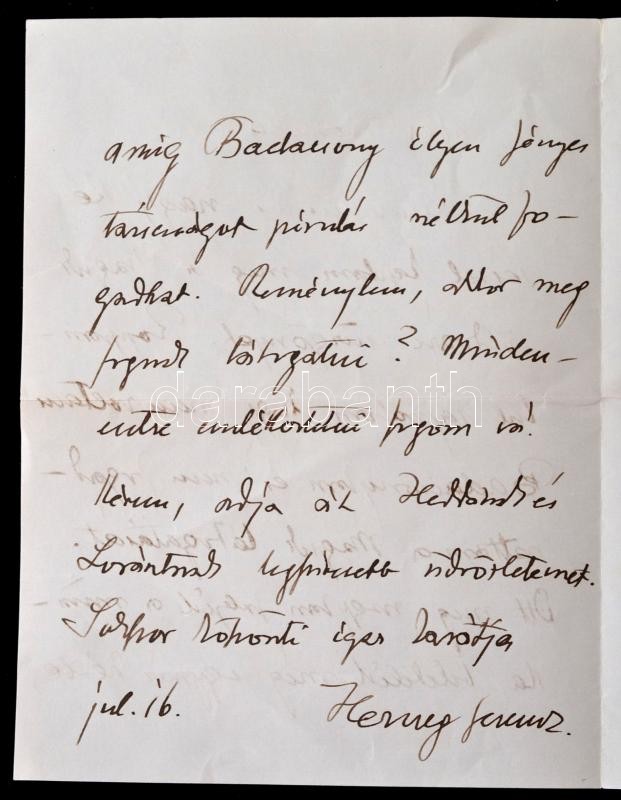 amíg Badacsony ilyen fényes
társaságot pirulás nélkül fo-
gadhat. Reménylem, akkor meg
fognak látogatni? Minden-
esetre emlékeztetni fogom rá!
Kérem, adja át Heddának és
Lorántnak legszívesebb üdvözletemet.
Sokszor köszönti igaz barátja
jul. 16. Herczeg Ferencz.
darabanth